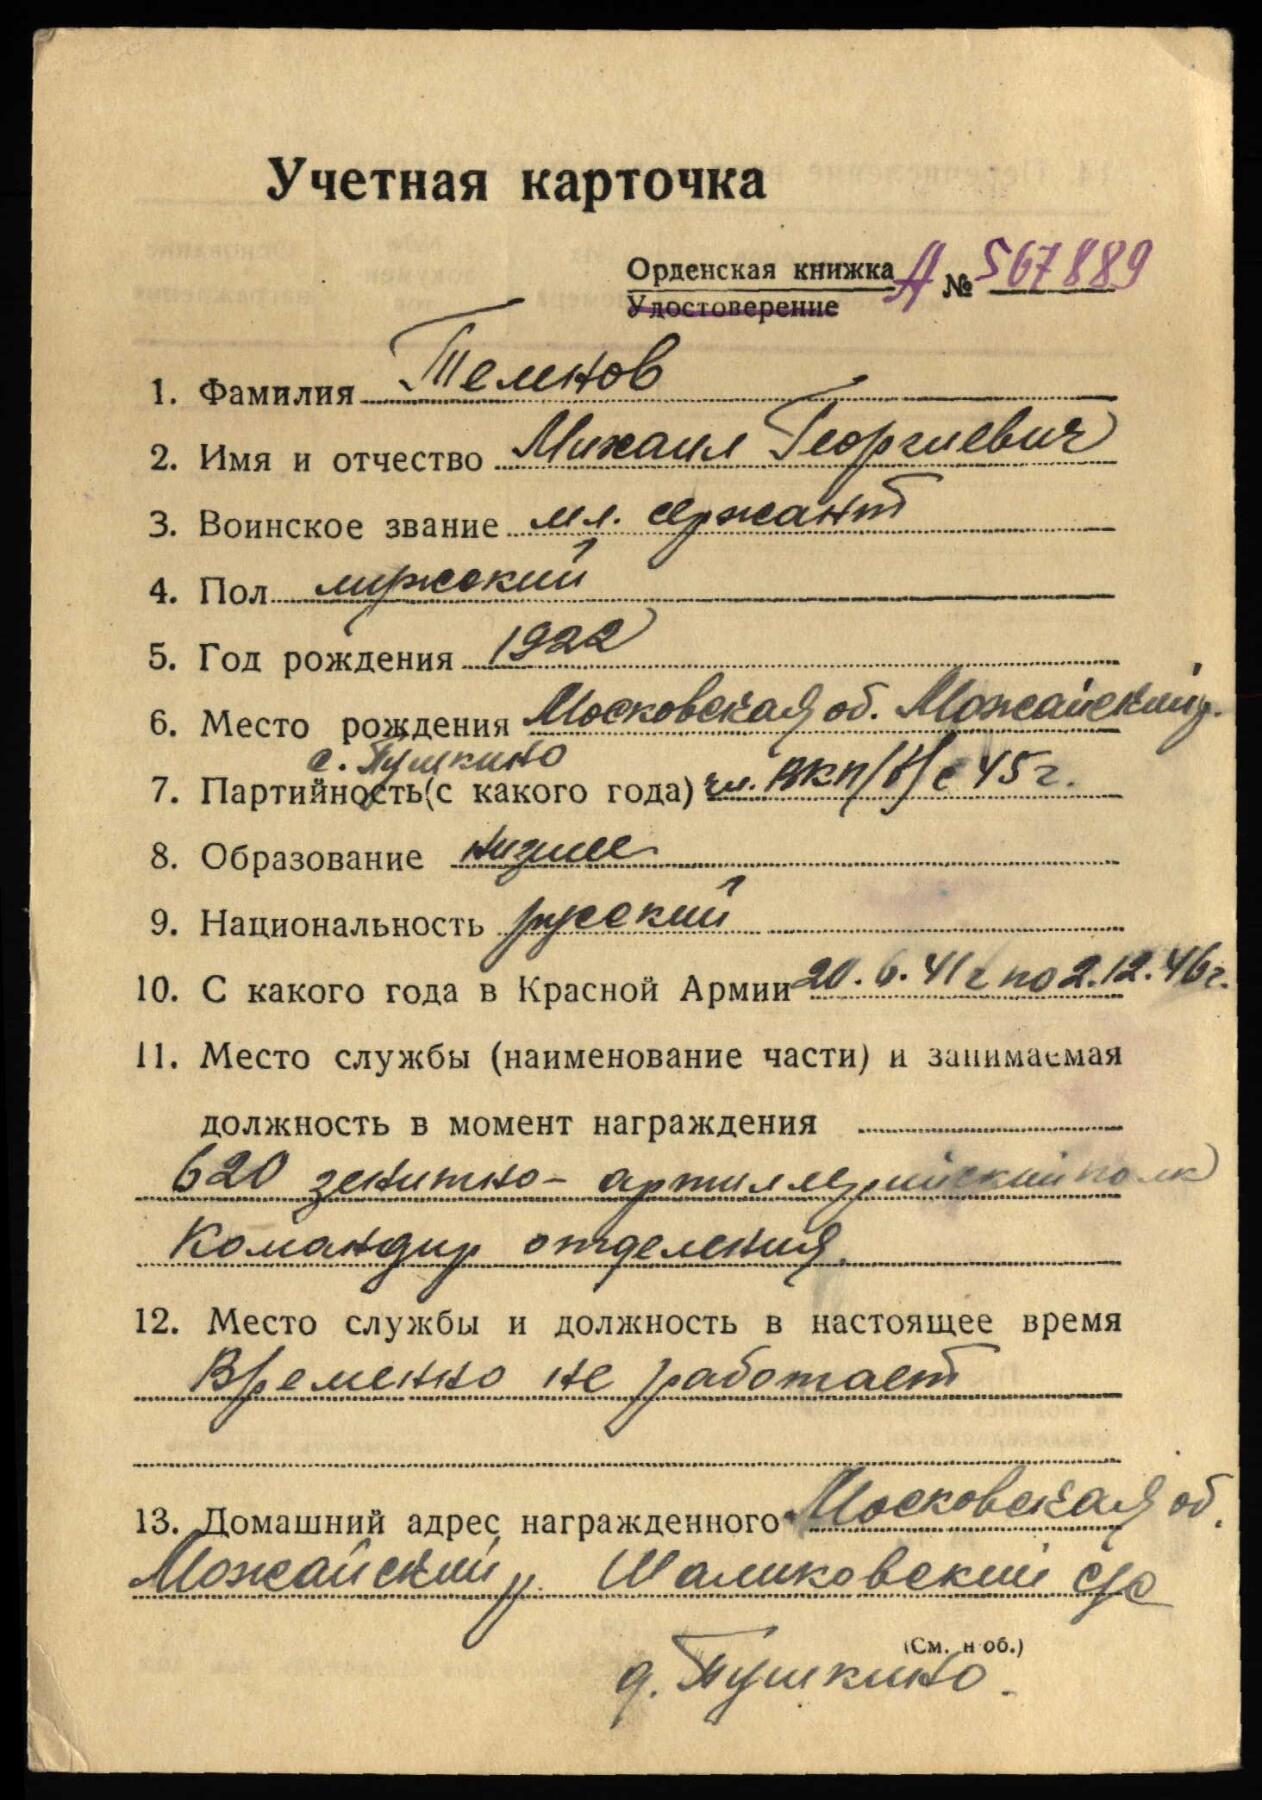 Учетная карточка
Орденская книжка А № 567889
Удостоверение
1. Фамилия Темнов
2. Имя и отчество Михаил Георгиевич
3. Воинское звание мл. сержант
4. Пол мужской
5. Год рождения 1922
6. Место рождения Московская об. Можайский р.
с. Пушкино
7. Партийность (с какого года) чл. ВКП/б/ с 45 г.
8. Образование низшее
9. Национальность русский
10. С какого года в Красной Армии 20.6.41 г по 2.12.46 г.
11. Место службы (наименование части) и занимаемая
должность в момент награждения
620 зенитно-артиллерийский полк
Командир отделения.
12. Место службы и должность в настоящее время
Временно не работает
13. Домашний адрес награжденного Московская об.
Можайский р. Шаликовский с/с
(См. н об.)
д. Пушкино.